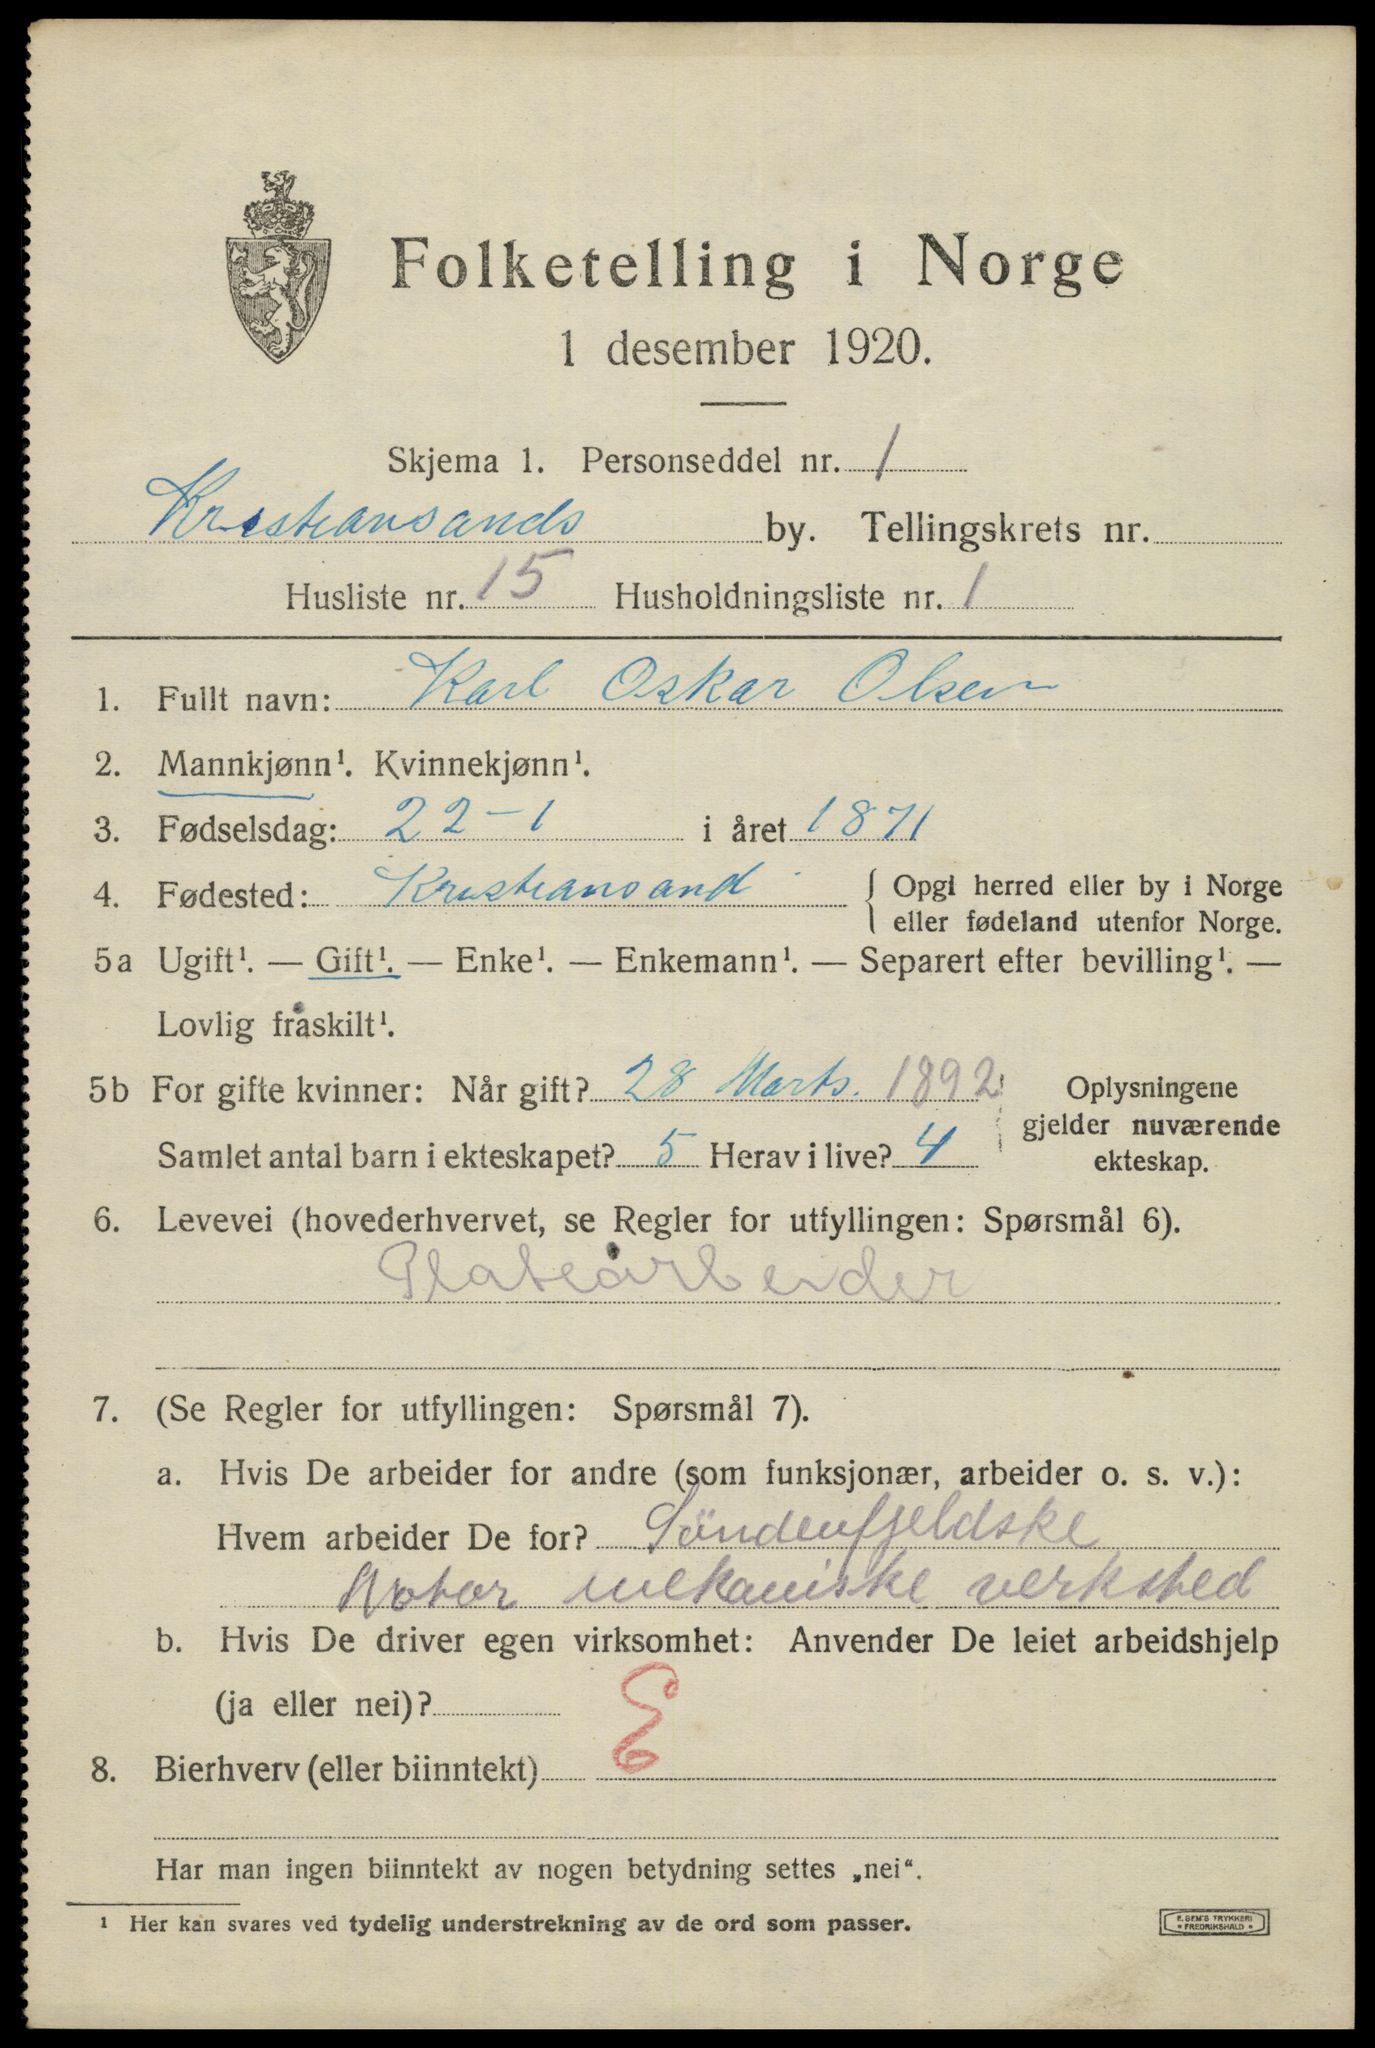 Folketelling i Norge
1 desember 1920.
Skjema 1. Personseddel nr. 1
Kristiansands by. Tellingskrets nr.
Husliste nr. 15 Husholdningsliste nr. 1
1. Fullt navn: Karl Oskar Olsen
2. Mannkjønn¹. Kvinnekjønn¹.
3. Fødselsdag: 22-1 i året 1871
4. Fødested: Kristiansand { Opgi herred eller by i Norge
eller fødeland utenfor Norge.
5a Ugift¹. — Gift¹. — Enke¹. — Enkemann¹. — Separert efter bevilling¹. —
Lovlig fraskilt¹.
5b For gifte kvinner: Når gift? 28 Marts. 1892 Oplysningene
gjelder nuværende
Samlet antal barn i ekteskapet? 5 Herav i live? 4 ekteskap.
6. Levevei (hovederhvervet, se Regler for utfyllingen: Spørsmål 6).
Platearbeider
7. (Se Regler for utfyllingen: Spørsmål 7).
a. Hvis De arbeider for andre (som funksjonær, arbeider o. s. v.):
Hvem arbeider De for? Söndenfjeldske
Motor mekaniske verksted
b. Hvis De driver egen virksomhet: Anvender De leiet arbeidshjelp
(ja eller nei)?
E
8. Bierhverv (eller biinntekt)
Har man ingen biinntekt av nogen betydning settes „nei“.
¹ Her kan svares ved tydelig understrekning av de ord som passer.
E. SEM'S TRYKKERI
* FREDRIKSHALD *